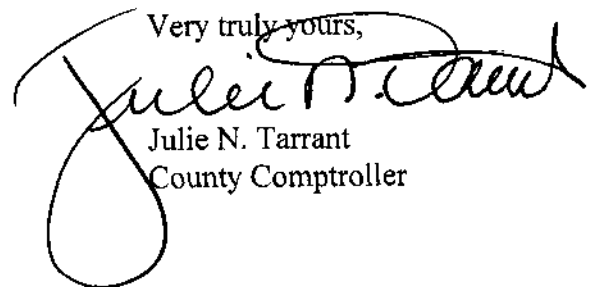 Very truly yours,
Julie N. Tarrant
Julie N. Tarrant
County Comptroller